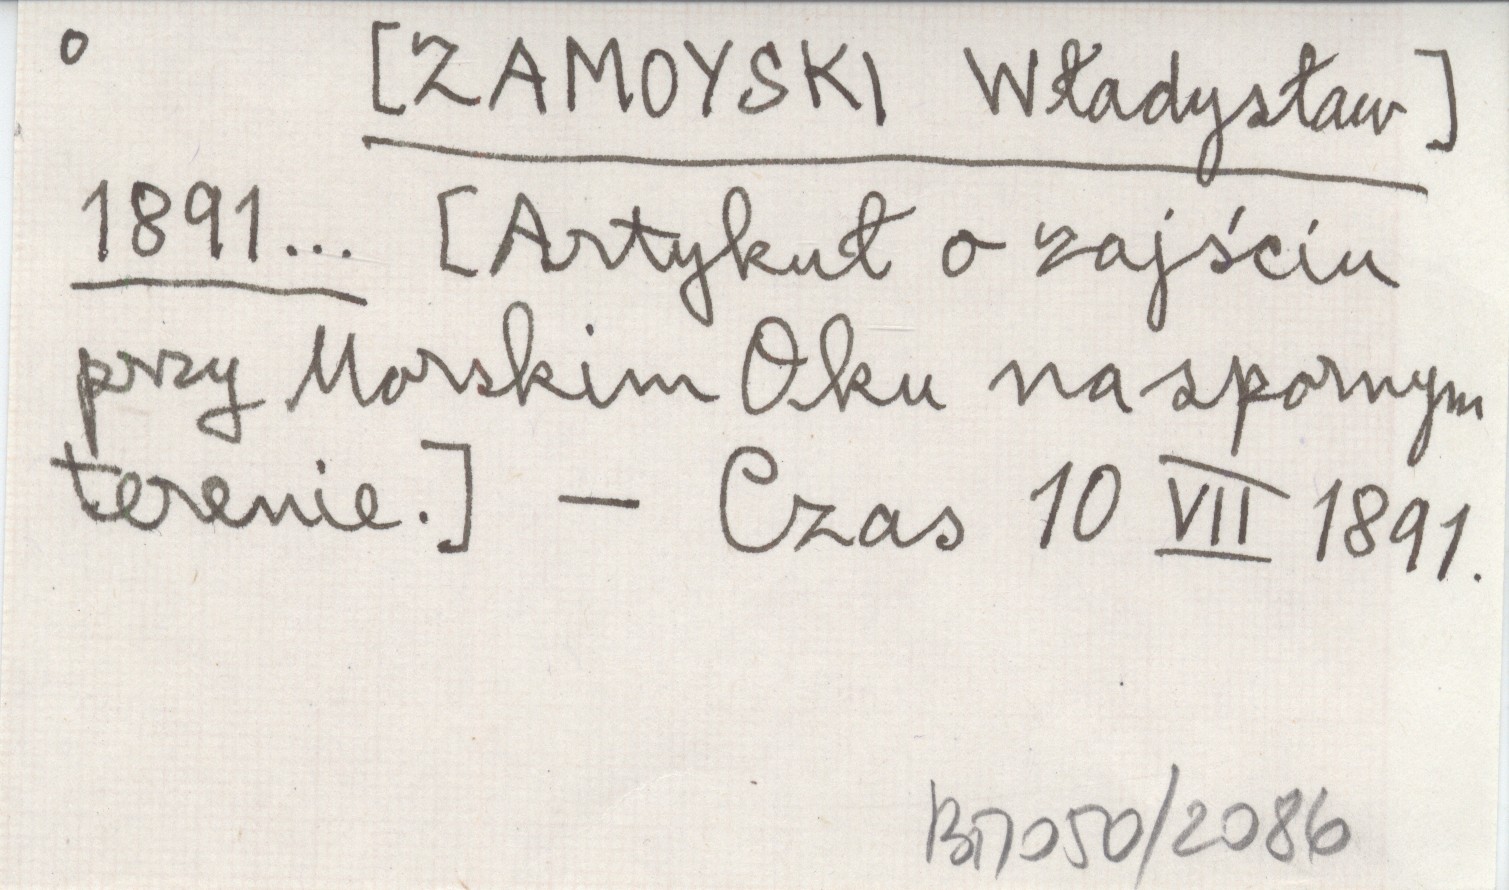 o [ZAMOYSKI Władysław]
1891... [Artykuł o zajściu
przy Morskim Oku na spornym
terenie.] — Czas 10 VII 1891.